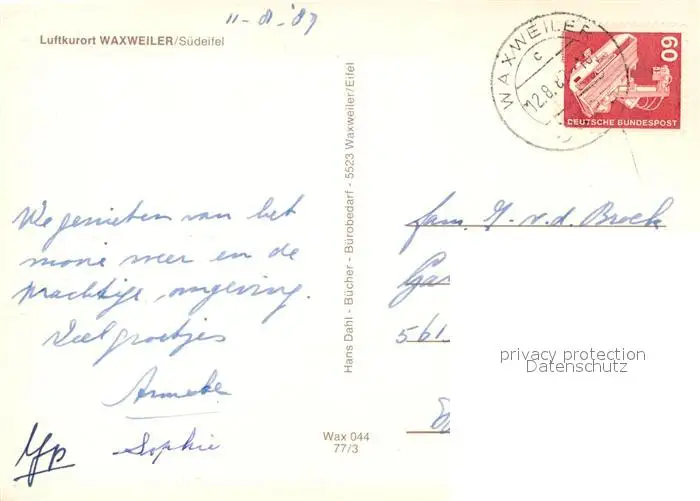 11-8-'87
Luftkurort WAXWEILER/Südeifel
WAXWEILER
c
12.8.8
60
DEUTSCHE BUNDESPOST
We genieten van het
mooie weer en de
prachtige omgeving.
Veel groetjes
Anneke
Sophie
Hans Dahl - Bücher - Bürobedarf - 5523 Waxweiler/Eifel
fam. v.d. Broek
561
privacy protection
Datenschutz
Wax 044
77/3